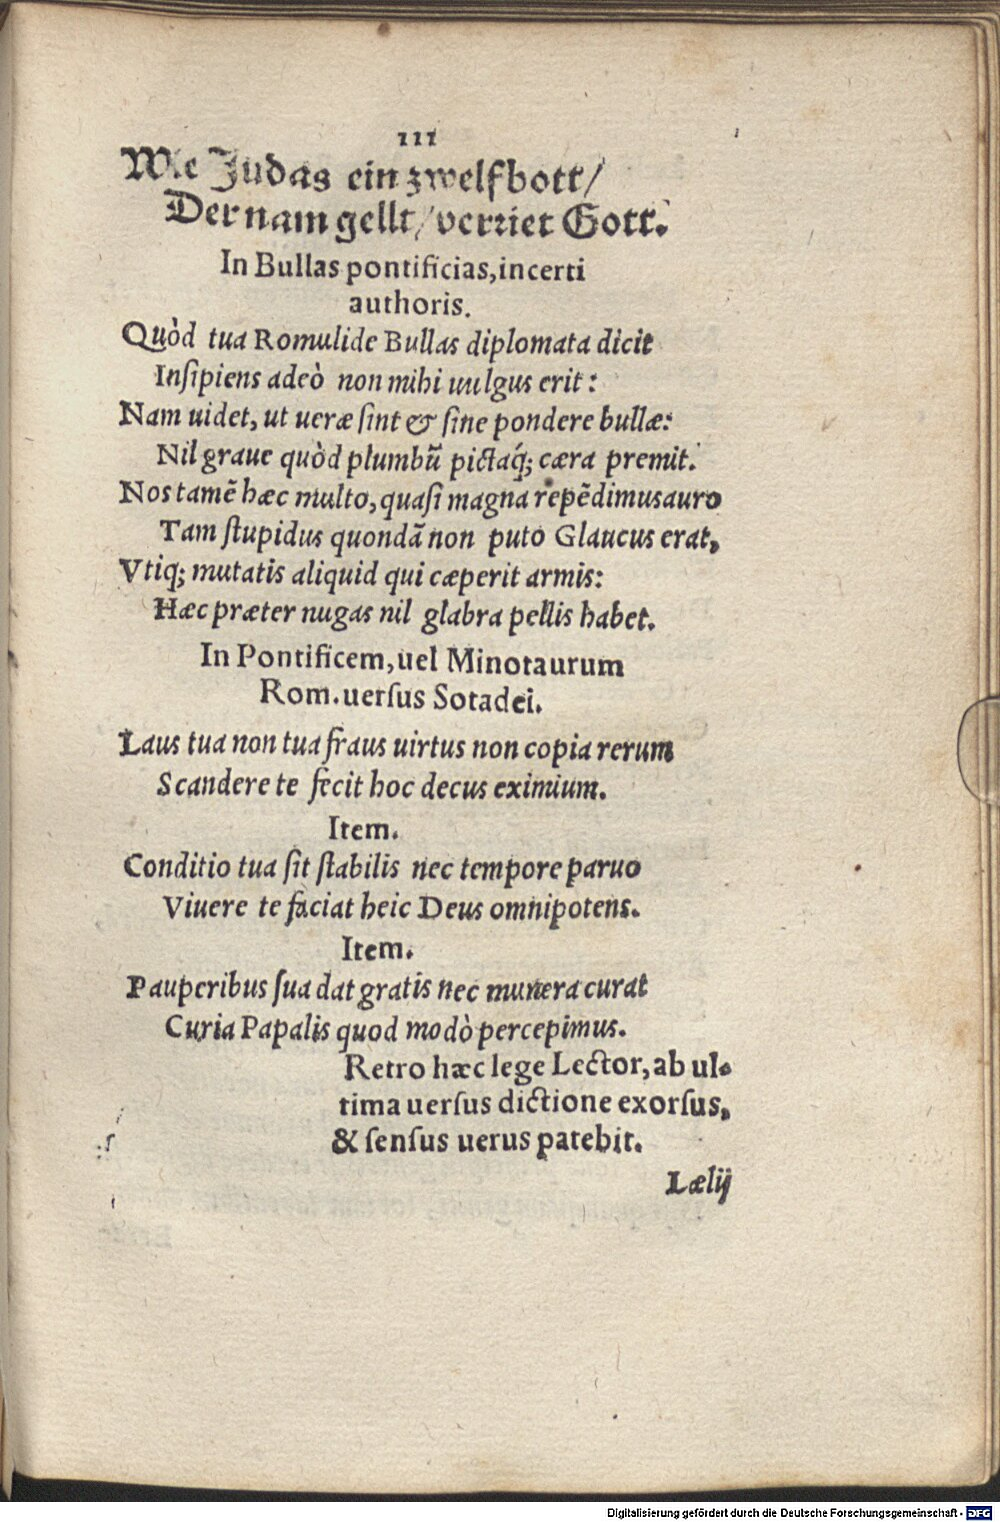 111
Wie Judas ein zwelfbott/
Der nam gellt/verriet Gott.
In Bullas pontificias,incerti
authoris.
Quòd tua Romulide Bullas diplomata dicit
Inſipiens adeò non mihi uulgus erit:
Nam uidet, ut ueræ ſint & ſine pondere bullæ:
Nil graue quòd plumbũ pictaq́; cæra premit.
Nos tamẽ hæc multo, quaſi magna repẽdimus auro
Tam ſtupidus quondã non puto Glaucus erat,
Vtiq; mutatis aliquid qui cæperit armis:
Hæc præter nugas nil glabra pellis habet.
In Pontificem,uel Minotaurum
Rom.uerſus Sotadei.
Laus tua non tua fraus uirtus non copia rerum
Scandere te fecit hoc decus eximium.
Item.
Conditio tua ſit ſtabilis nec tempore paruo
Viuere te faciat heic Deus omnipotens.
Item.
Pauperibus ſua dat gratis nec munera curat
Curia Papalis quod modò percepimus.
Retro hæc lege Lector,ab ul-
tima uerſus dictione exorſus,
& ſenſus uerus patebit.
Lælij
Digitalisierung gefördert durch die Deutsche Forschungsgemeinschaft - DFG